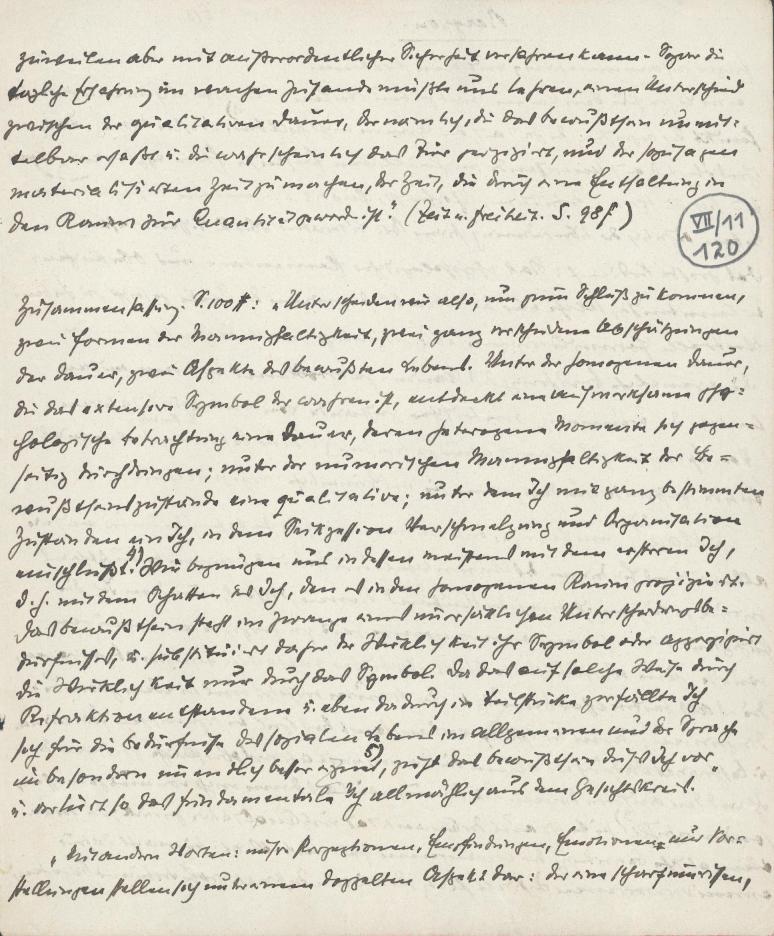 zuweilen aber mit außerordentlicher Sicherheit verfahren kann. Sogar die
tägliche Erfahrung im wachen Zustande müßte uns lehren, einen Unterschied
zwischen der qualitativen Dauer, der nämlich, die das Bewußtsein unmit-
telbar erfaßt u. die wahrscheinlich das Tier perzipiert, und der sozusagen
materialisierten Zeit zu machen, der Zeit, die durch eine Entfaltung in
den Raum zur Quantität geword. ist." (Zeit u. Freiheit. S. 98f)
VII/11
120
Zusammenfassung. S. 100 ff: „Unterscheiden wir also, um zum Schluß zu kommen,
zwei Formen der Mannigfaltigkeit, zwei ganz verschiedene Abschätzungen
der Dauer, zwei Aspekte des bewußten Lebens. Unter der homogenen Dauer,
die das extensive Symbol der wahren ist, entdeckt eine aufmerksame psy-
chologische Betrachtung eine Dauer, deren heterogene Momente sich gegen-
seitig durchdringen; unter der numerischen Mannigfaltigkeit der Be-
wußtseinszustände eine qualitative; unter dem Ich mit ganz bestimmten
Zuständen ein Ich, in dem Sukzession Verschmelzung und Organisation
einschließt. 4) Wir begnügen uns indessen meistens mit dem ersteren Ich,
d. h. mit dem Schatten des Ich, den es in den homogenen Raum projiziert.
Das Bewußtsein steht im Zwange eines unersättlichen Unterscheidungsbe-
dürfnisses, u. substituiert daher der Wirklichkeit ihr Symbol oder apperzipiert
die Wirklichkeit nur durch das Symbol. Da das auf solche Weise durch
Refraktion entstandene u. eben dadurch in Teilstücke zerfällte Ich
sich für die Bedürfnisse des sozialen Lebens im allgemeinen und der Sprache
im besondern unendlich besser eignet, 5) zieht das Bewußtsein dies Ich vor
u. verliert so das fundamentale Ich allmählich aus dem Gesichtskreis."
„Mit andern Worten: unsre Perzeptionen, Empfindungen, Emotionen u. Vor-
stellungen stellen sich unter einem doppelten Aspekt dar: der eine scharf umrissen,